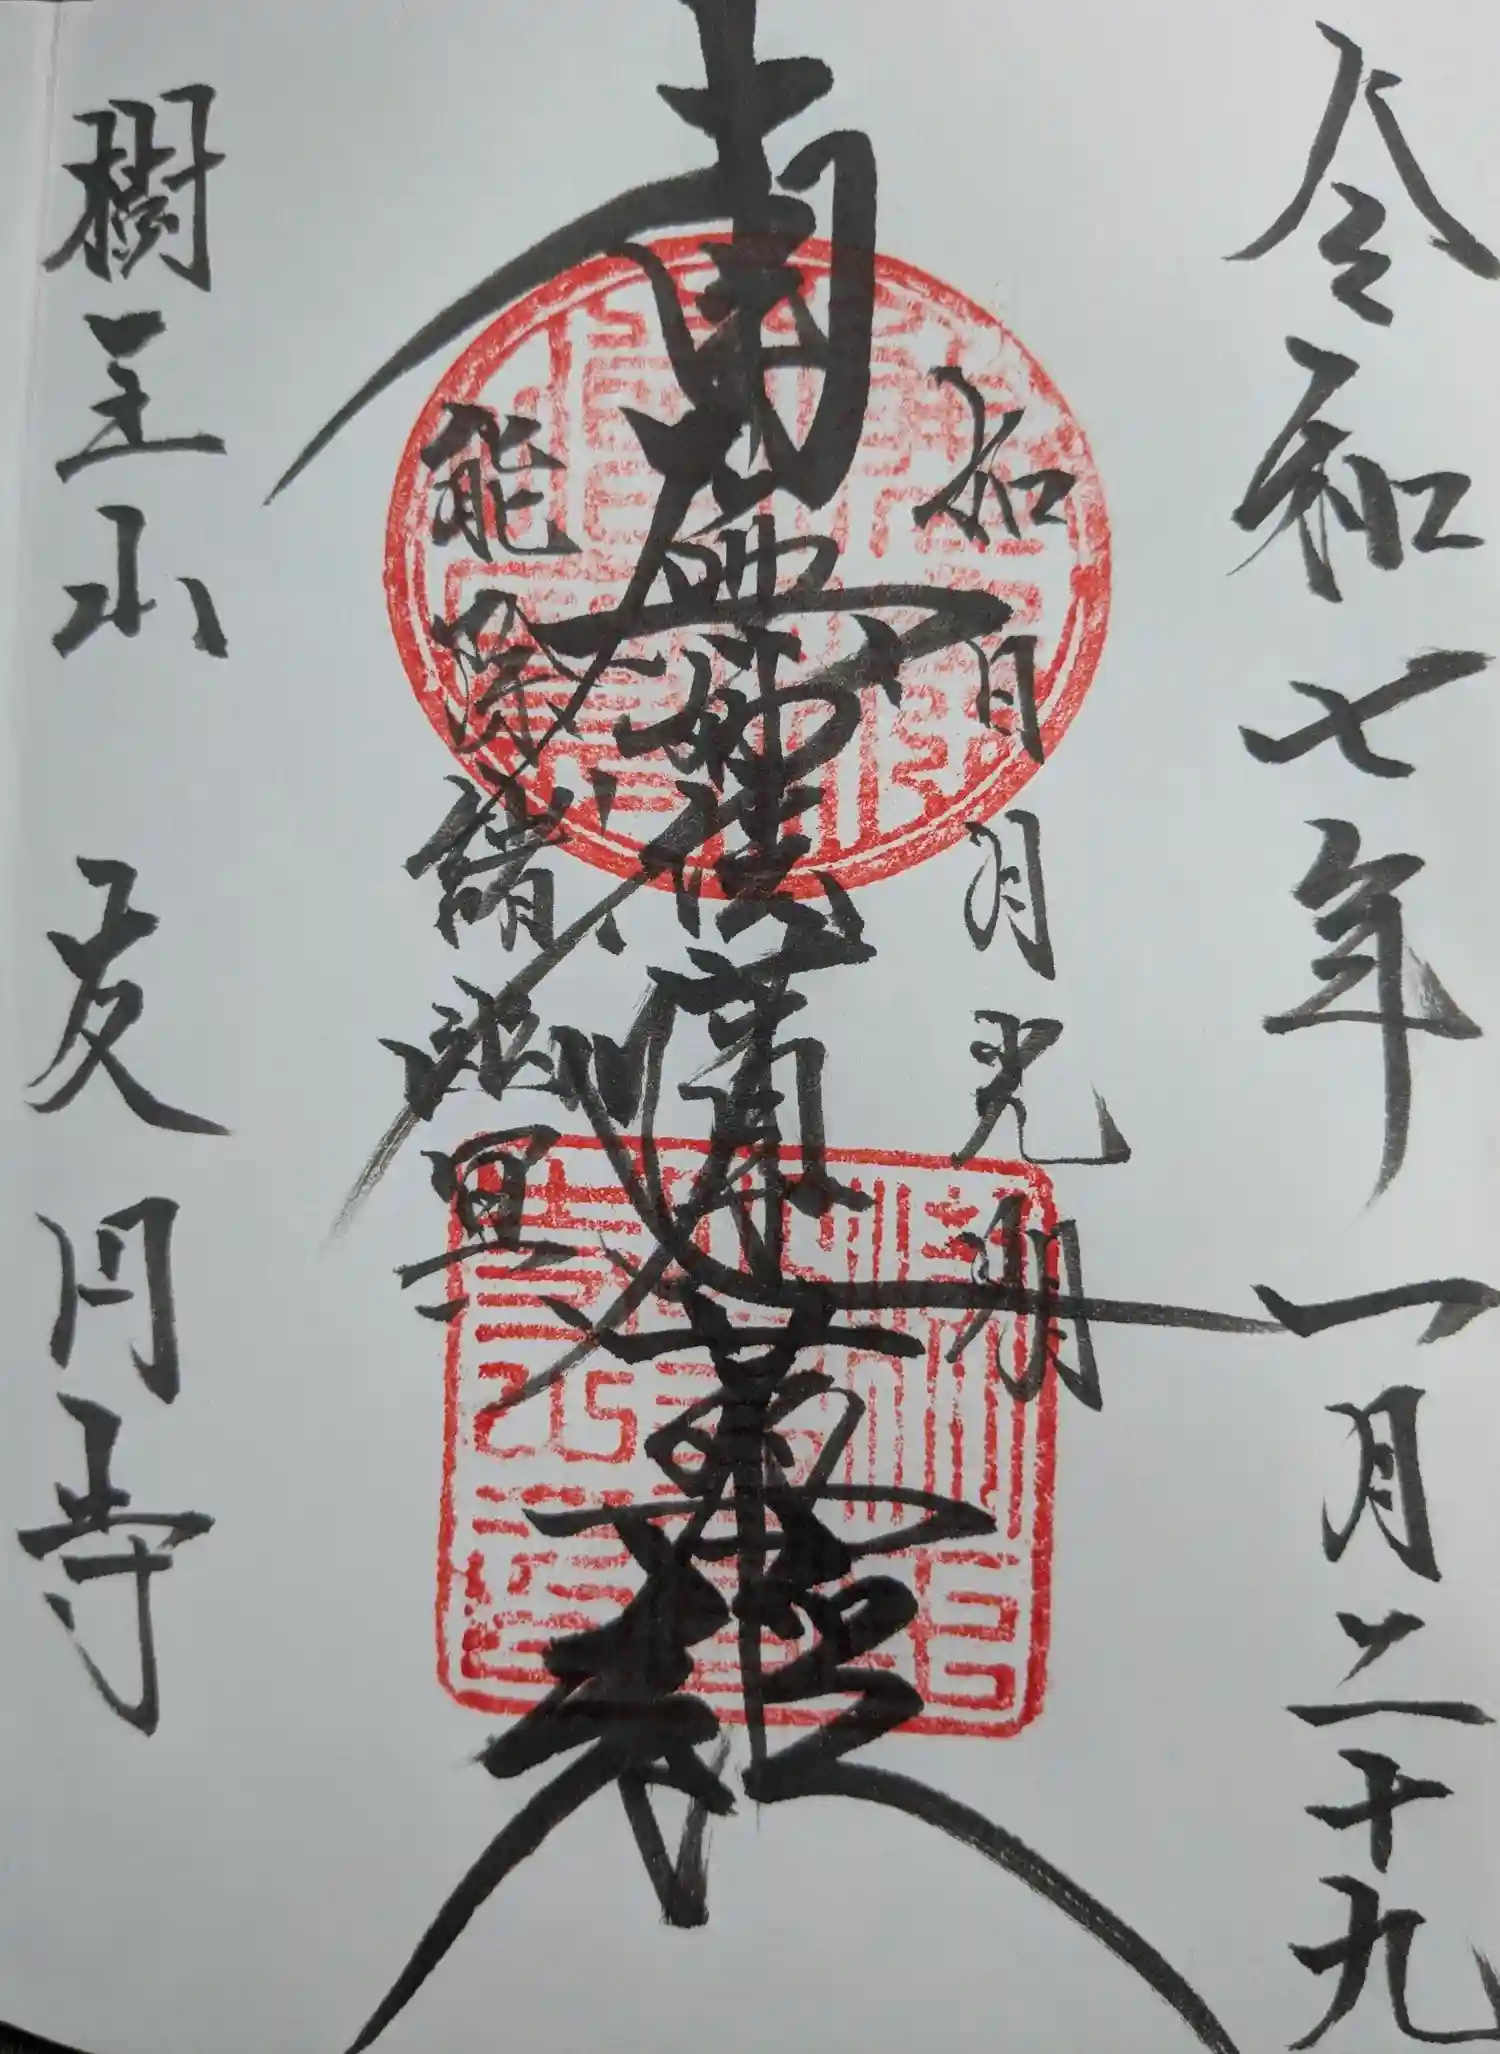 令和七年一月二十九
如日月光明
南無妙法蓮華経
能除諸幽冥
樹王山 友円寺